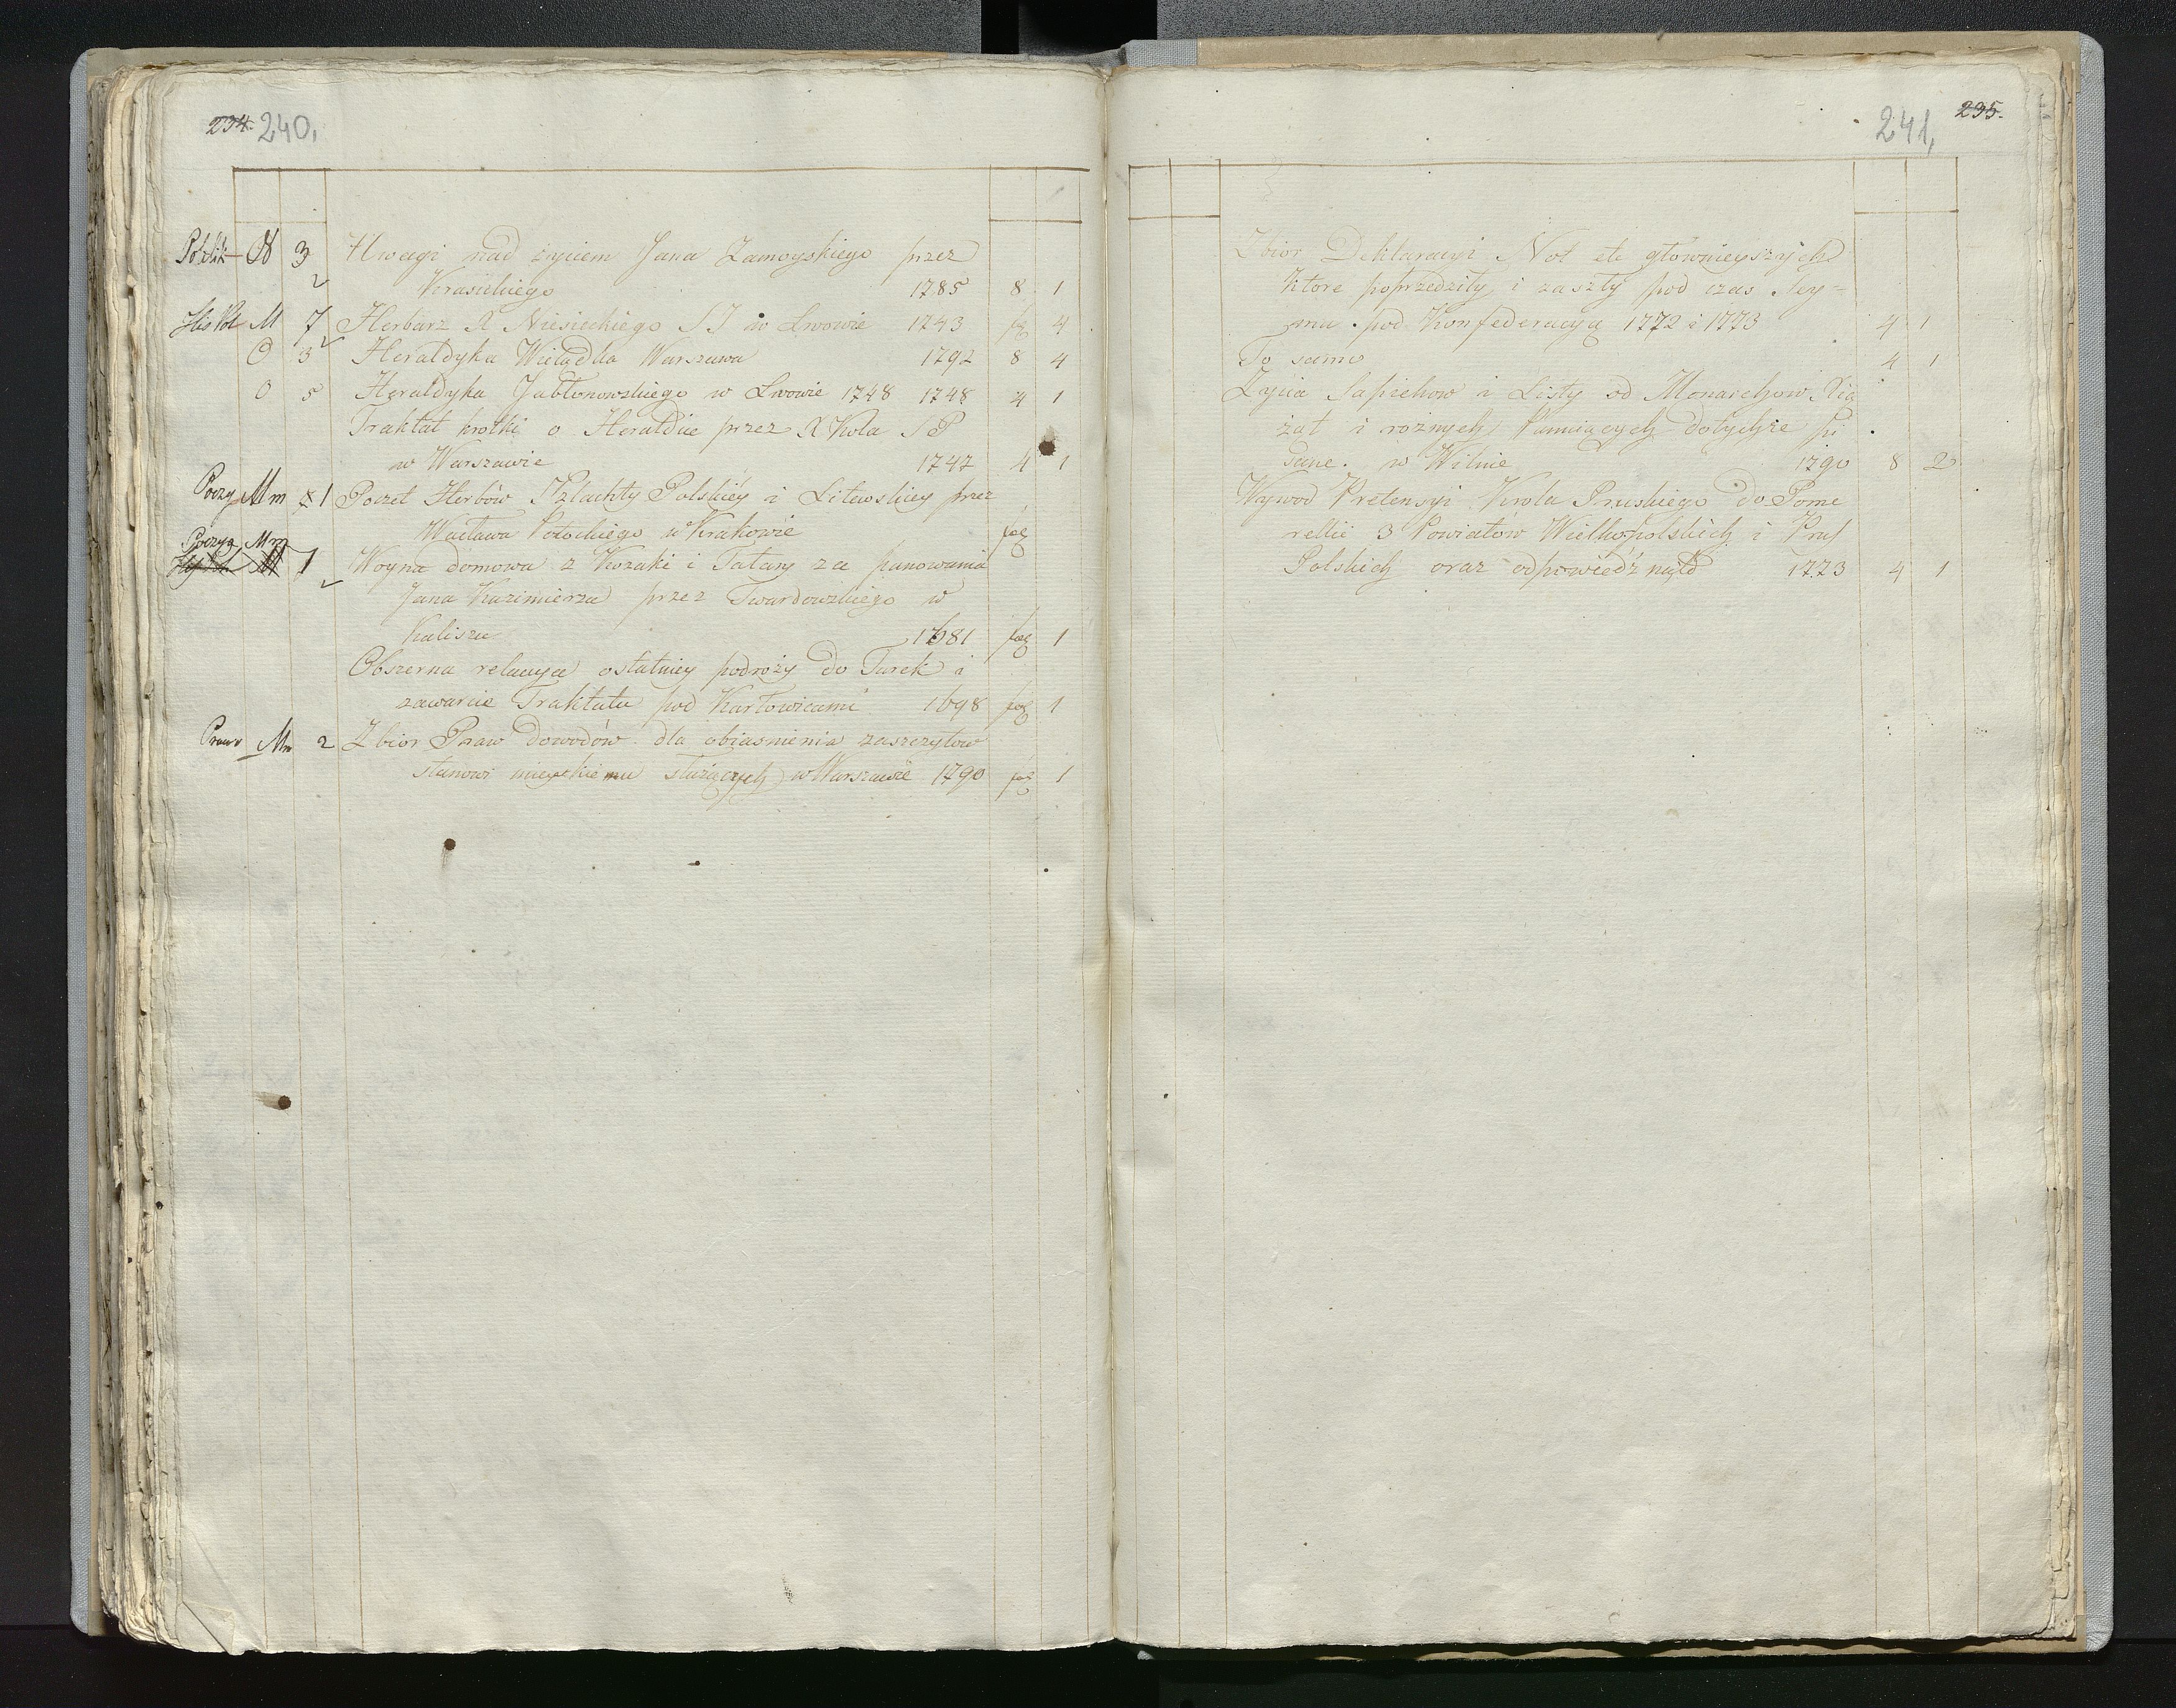 234. 240.
Polit— N 3 Uwagi nad życiem Jana Zamoyskiego przez
Krasickiego 1785 8 1
His Pol M 7 Herbarz X Niesieckiego SJ w Lwowie 1743 fol 4
O 3 Heraldyka Wielądka Warszawa 1792 8 4
O 5 Heraldyka Jabłonowskiego w Lwowie 1748 1748 4 1
Traktat krotki o Heraldice przez X Kola SP
w Warszawie 1747 4 1
Poezy Mm 1 Poczet Herbów Szlachty Polskiey i Litewskiey przez
Wacława Potockiego w Krakowie fol
Poezya Mm
1 Woyna domowa z Kozaki i Tatary za panowania
Jana Kazimierza przez Twardowskiego w
Kaliszu 1681 fol 1
Obszerna relacya ostatniey podroży do Turek i
zawarcie Traktatu pod Karłowicami 1698 fol 1
Prawo Mm 2 Zbior Praw dowodów dla obiasnienia zaszczytow
stanowi mieyskiemu służących w Warszawie 1790 fol 1
241, 235.
Zbior Deklaracyi Not etc głownieyszych
ktore poprzedziły i zaszły pod czas Sey=
mu pod Konfederacyą 1772 i 1773 4 1
To samo 4 1
Życia Sapiehow i Listy od Monarchow Xią
żąt i rożnych Panuiących dotychże pi
sane. w Wilnie 1790 8 2
Wywod Pretensyi Krola Pruskiego do Pome
rellii 3 Powiatów Wielkopolskich i Prus
Polskich oraz odpowiedź nań 1773 4 1